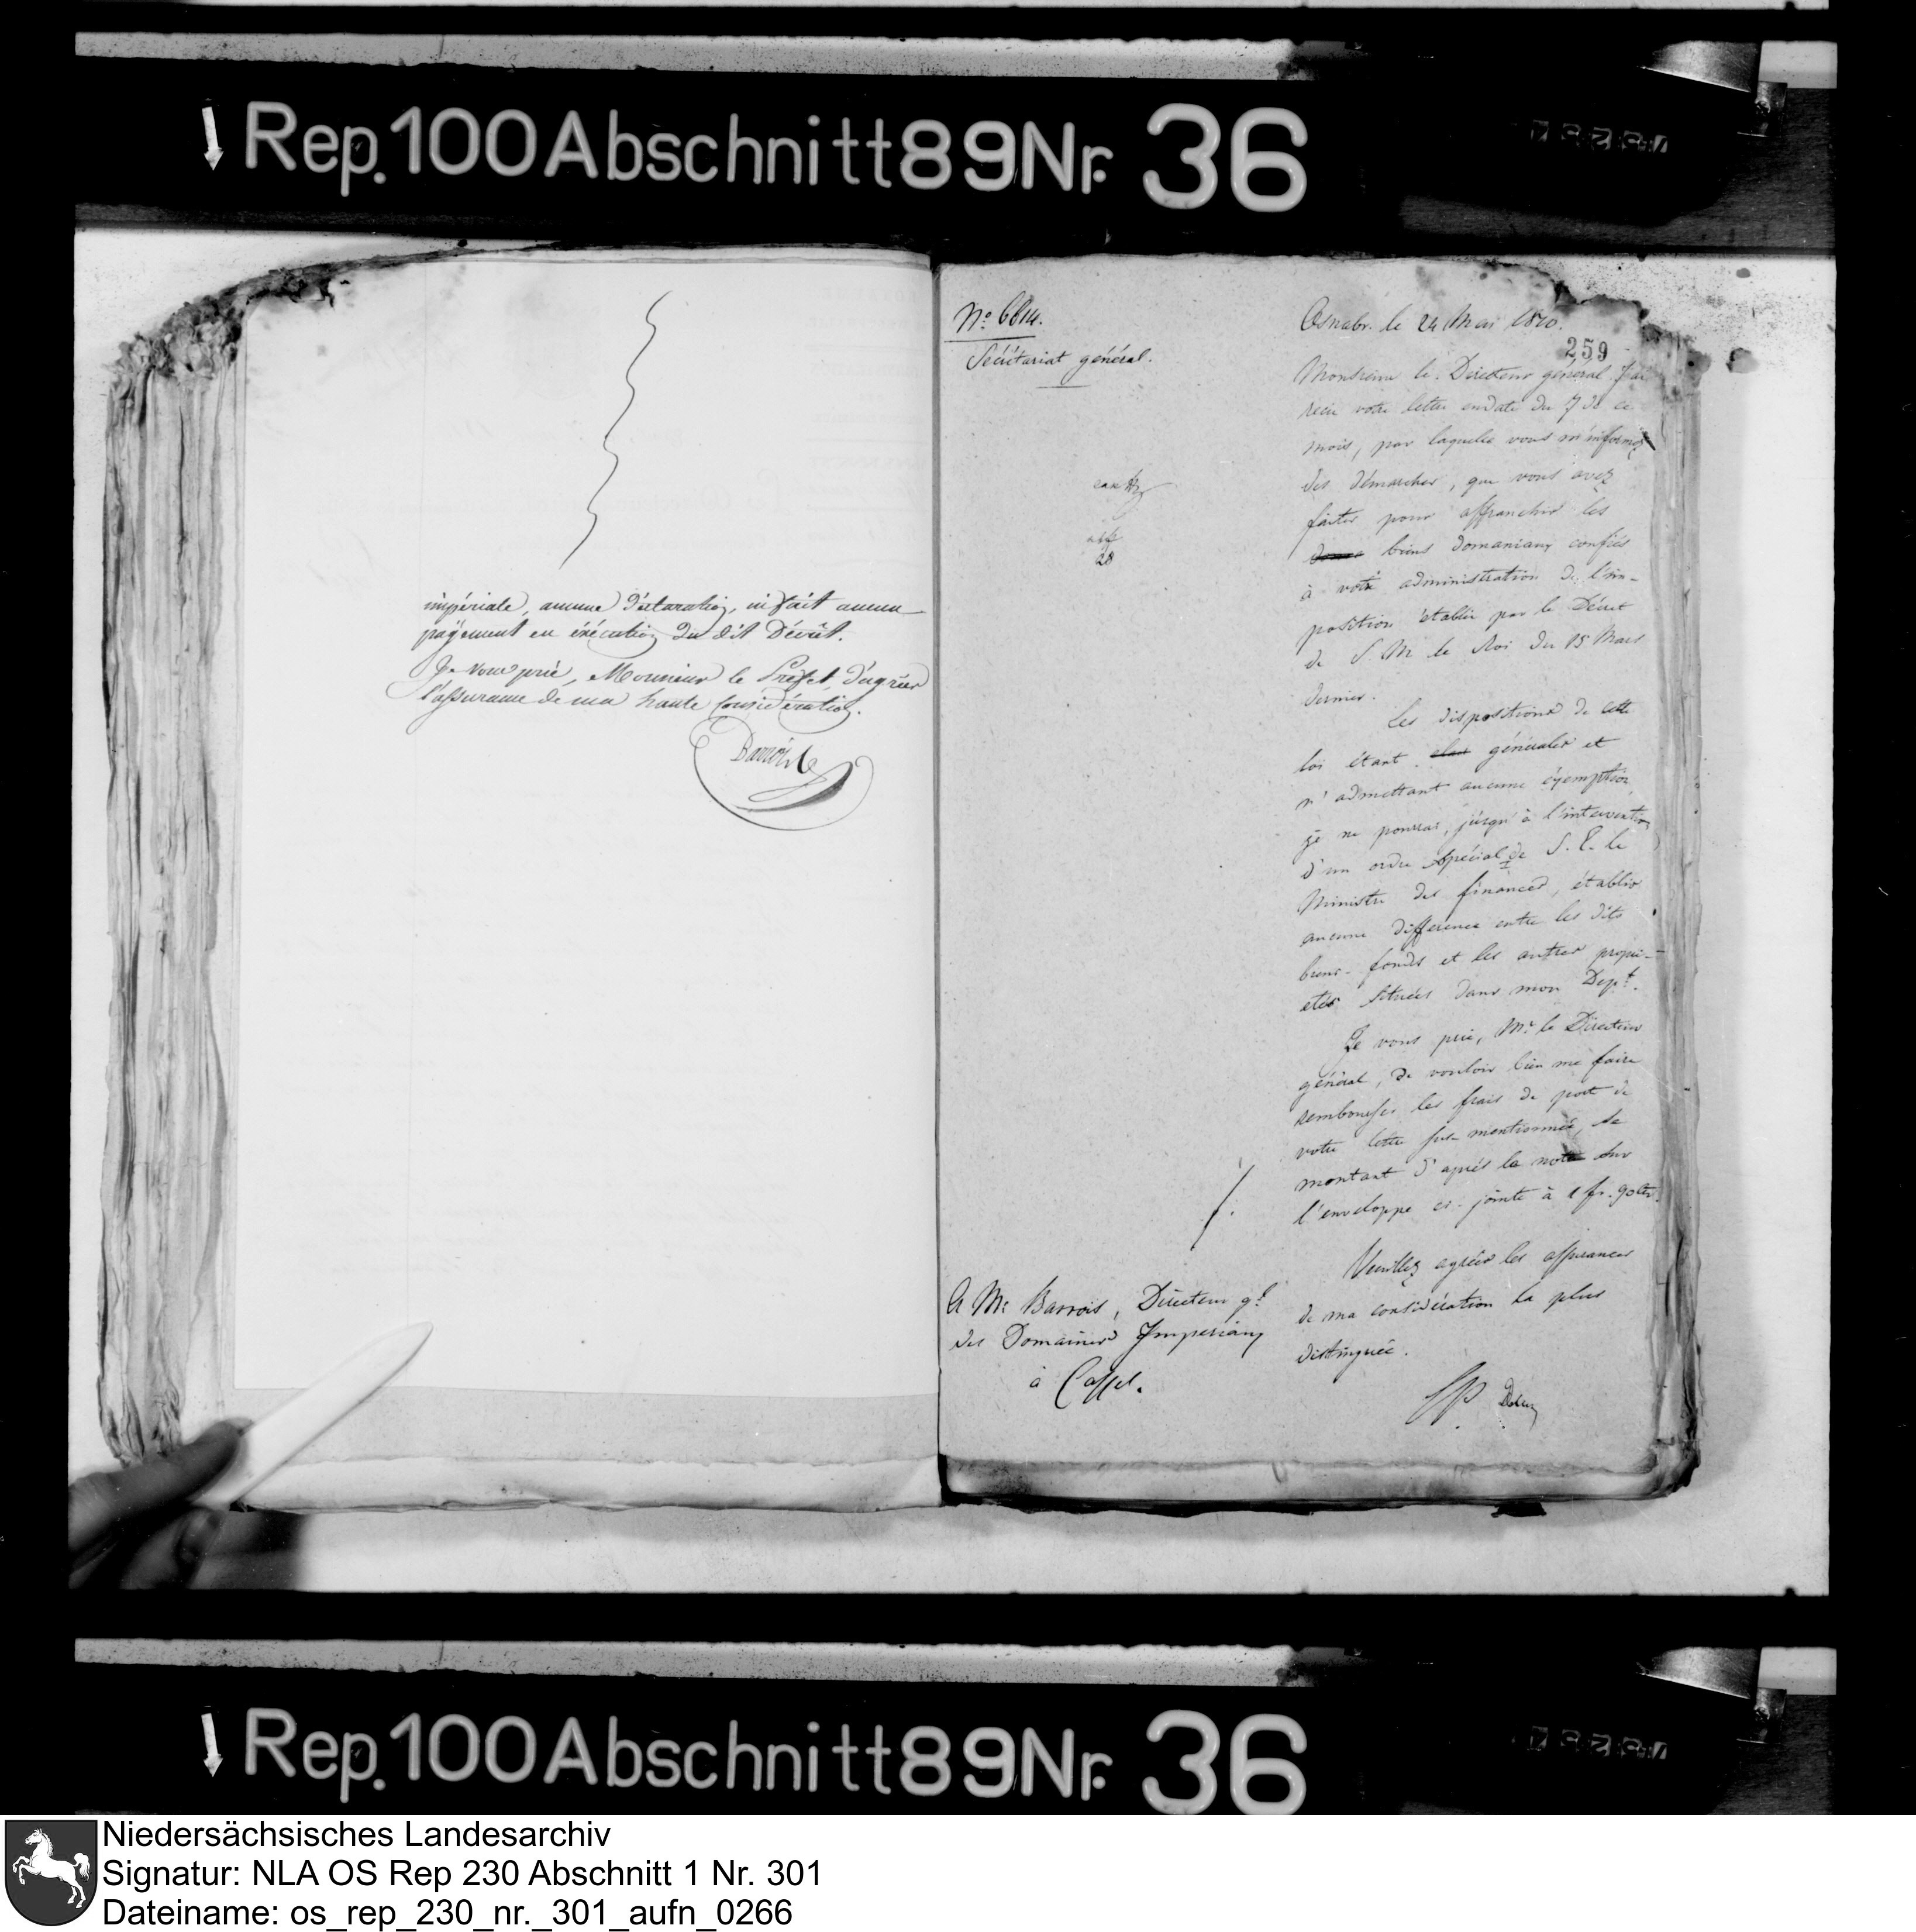 Rep. 100 Abschnitt 89 Nr. 36
impériale, aucune déclaration, ni fait aucun
payement en éxécution du dit Décrèt.
Je vous prie, Monsieur le Préfet, d'agréer
l'assurance de ma haute considération.
Barrois
No. 6814.
Secrétariat général.
28
Osnabr. le 24 Mai 1810.
259
Monsieur le Directeur général J'ai
reçu votre lettre en date du 7 de ce
mois, par laquelle vous m'informéz
des démarches, que vous avez
faites pour affranchir les
biens domaniaux confiés
à votre administration de l'im-
position établie par le Décret
de S. M. le Roi du 15 Mars
dernier.
Les dispositions de cette
loi étant générales et
n'admettant aucune éxemption,
je ne pourrai, jusqu'à l'intervention
d'un ordre spécial de S. E. le
Ministre des finances, établir
aucune difference entre les dits
biens-fonds et les autres propri-
etés situées dans mon Dept.
Je vous prie, Mr. le Directeur
général, de vouloir bien me faire
rembourser les frais de port de
votre lettre sus-mentionnée, se
montant d'après la note sur
l'enveloppe ci-jointe à 1 fr. 90 cts.
Veuillez agréer les assurances
de ma considération la plus
distinguée.
A Mr. Barrois, Directeur gl.
des Domaines Imperiaux
à Cassel.
Rep. 100 Abschnitt 89 Nr. 36
Niedersächsisches Landesarchiv
Signatur: NLA OS Rep 230 Abschnitt 1 Nr. 301
Dateiname: os_rep_230_nr._301_aufn_0266